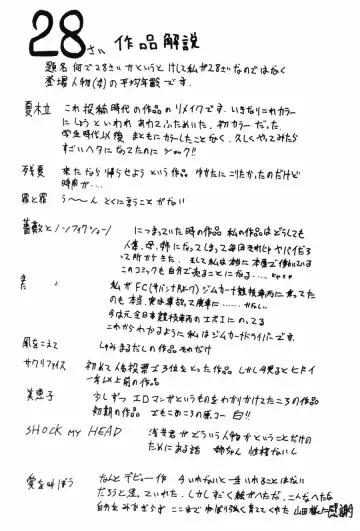 28さい 作品解説
題名 何で28さいかというと けして私が28さいなのではなく
登場人物(女)の平均年齢です.
夏木立 これ投稿時代の作品のリメイクです. いきなりこれカラー
にしようといわれ あわてふためいた. 初カラーだった.
学生時代以後 まともにカラーしたことなく、久しくやってみたら
すごいヘタになってたのに ショック!!
残夏 来たなら帰らせようという作品 ゆかたにこりたかったのだけど
時間が・・・
罪と罪 う〜〜ん とくに言うことがない
薔薇とノンフィクション につまっていた時の作品 私の作品はどうしても
人妻、母、姉になってしまって毎回それじゃヤバイだろ
って所から きた. そして私は本当に本屋で働いている
このコミックも自分で売ることになる・・・
また 私がFC ジムカーナ競技車両に乗ってた
のも本当. 実は事故って廃車に・・・・・
今はん全日本競技車両の に のってる
これからわかるように私はジムカーナドライバーです.
風をこえて しゅみまるだしの作品 それだけ
サクリファイス 初めて人気投票で3位をとった作品 しかし今見るとヒドイ
一年以上前の作品
美恵子 少しずつ エロマンガというものをわかりかけてたころの作品
初期の作品 でもこのころの原コー 白!!
SHOCK MY HEAD 浅君がどういう人物か ということだけの
ためにある話 姉ちゃん 性格ないし
愛を叫ぼう なんと デビュー作 今 いれないと一生いれることはない
だろうと 出していれた. しかしすごく絵がヘタだ. こんなヘタな
自分をみすてず ここまで ねばり強く育ててくれた 山田様に感謝